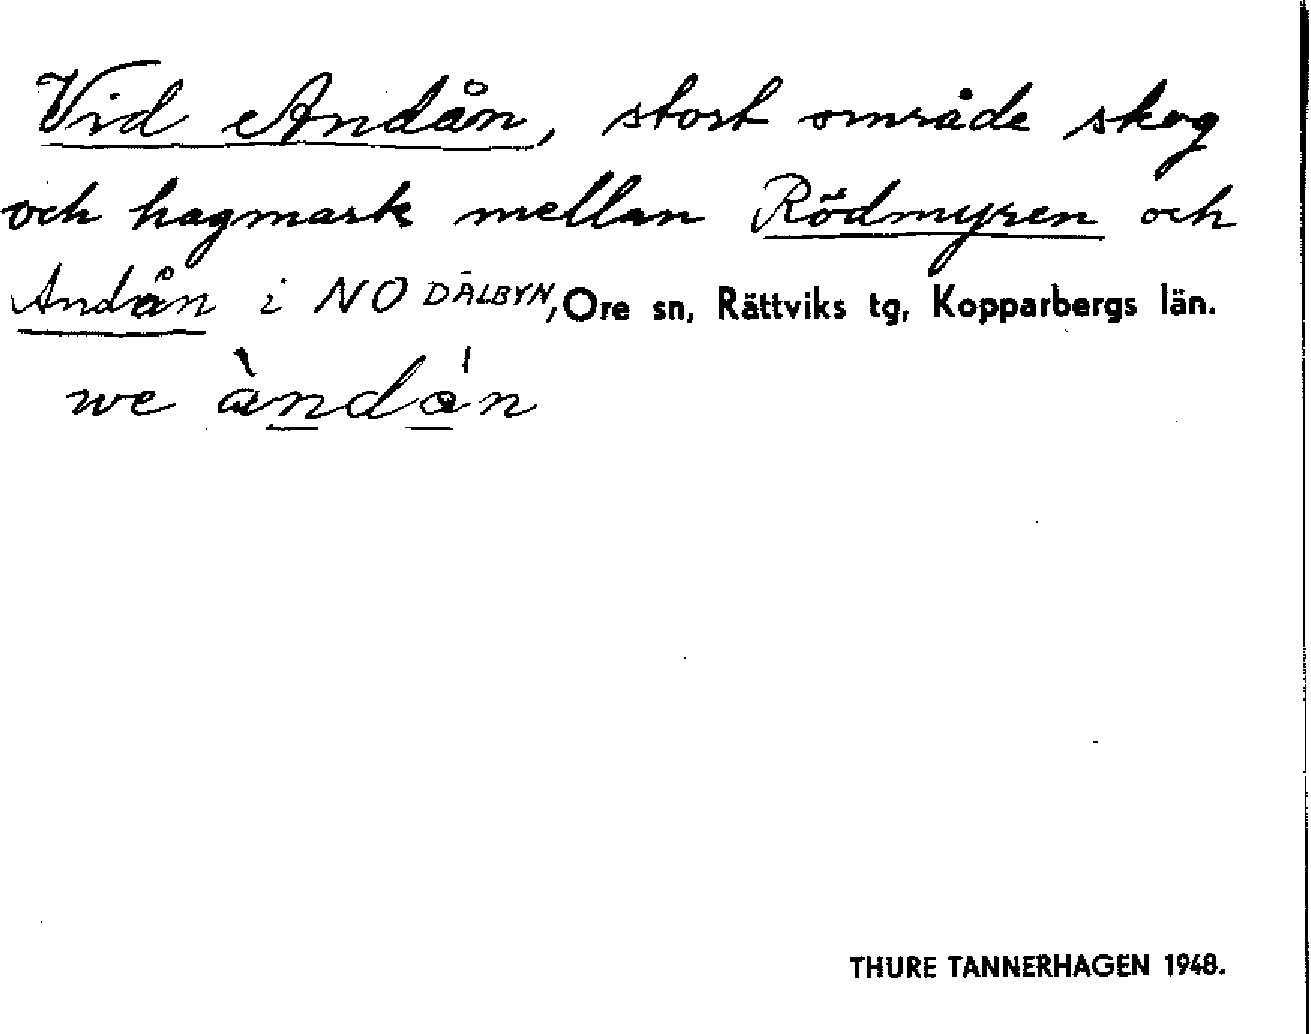 Vid Andån, stort område skog
och hagmark mellan Rödmyren och
Andån i NO DALBYN, Ore sn, Rättviks tg, Kopparbergs län.
we àndá'n
THURE TANNERHAGEN 1948.